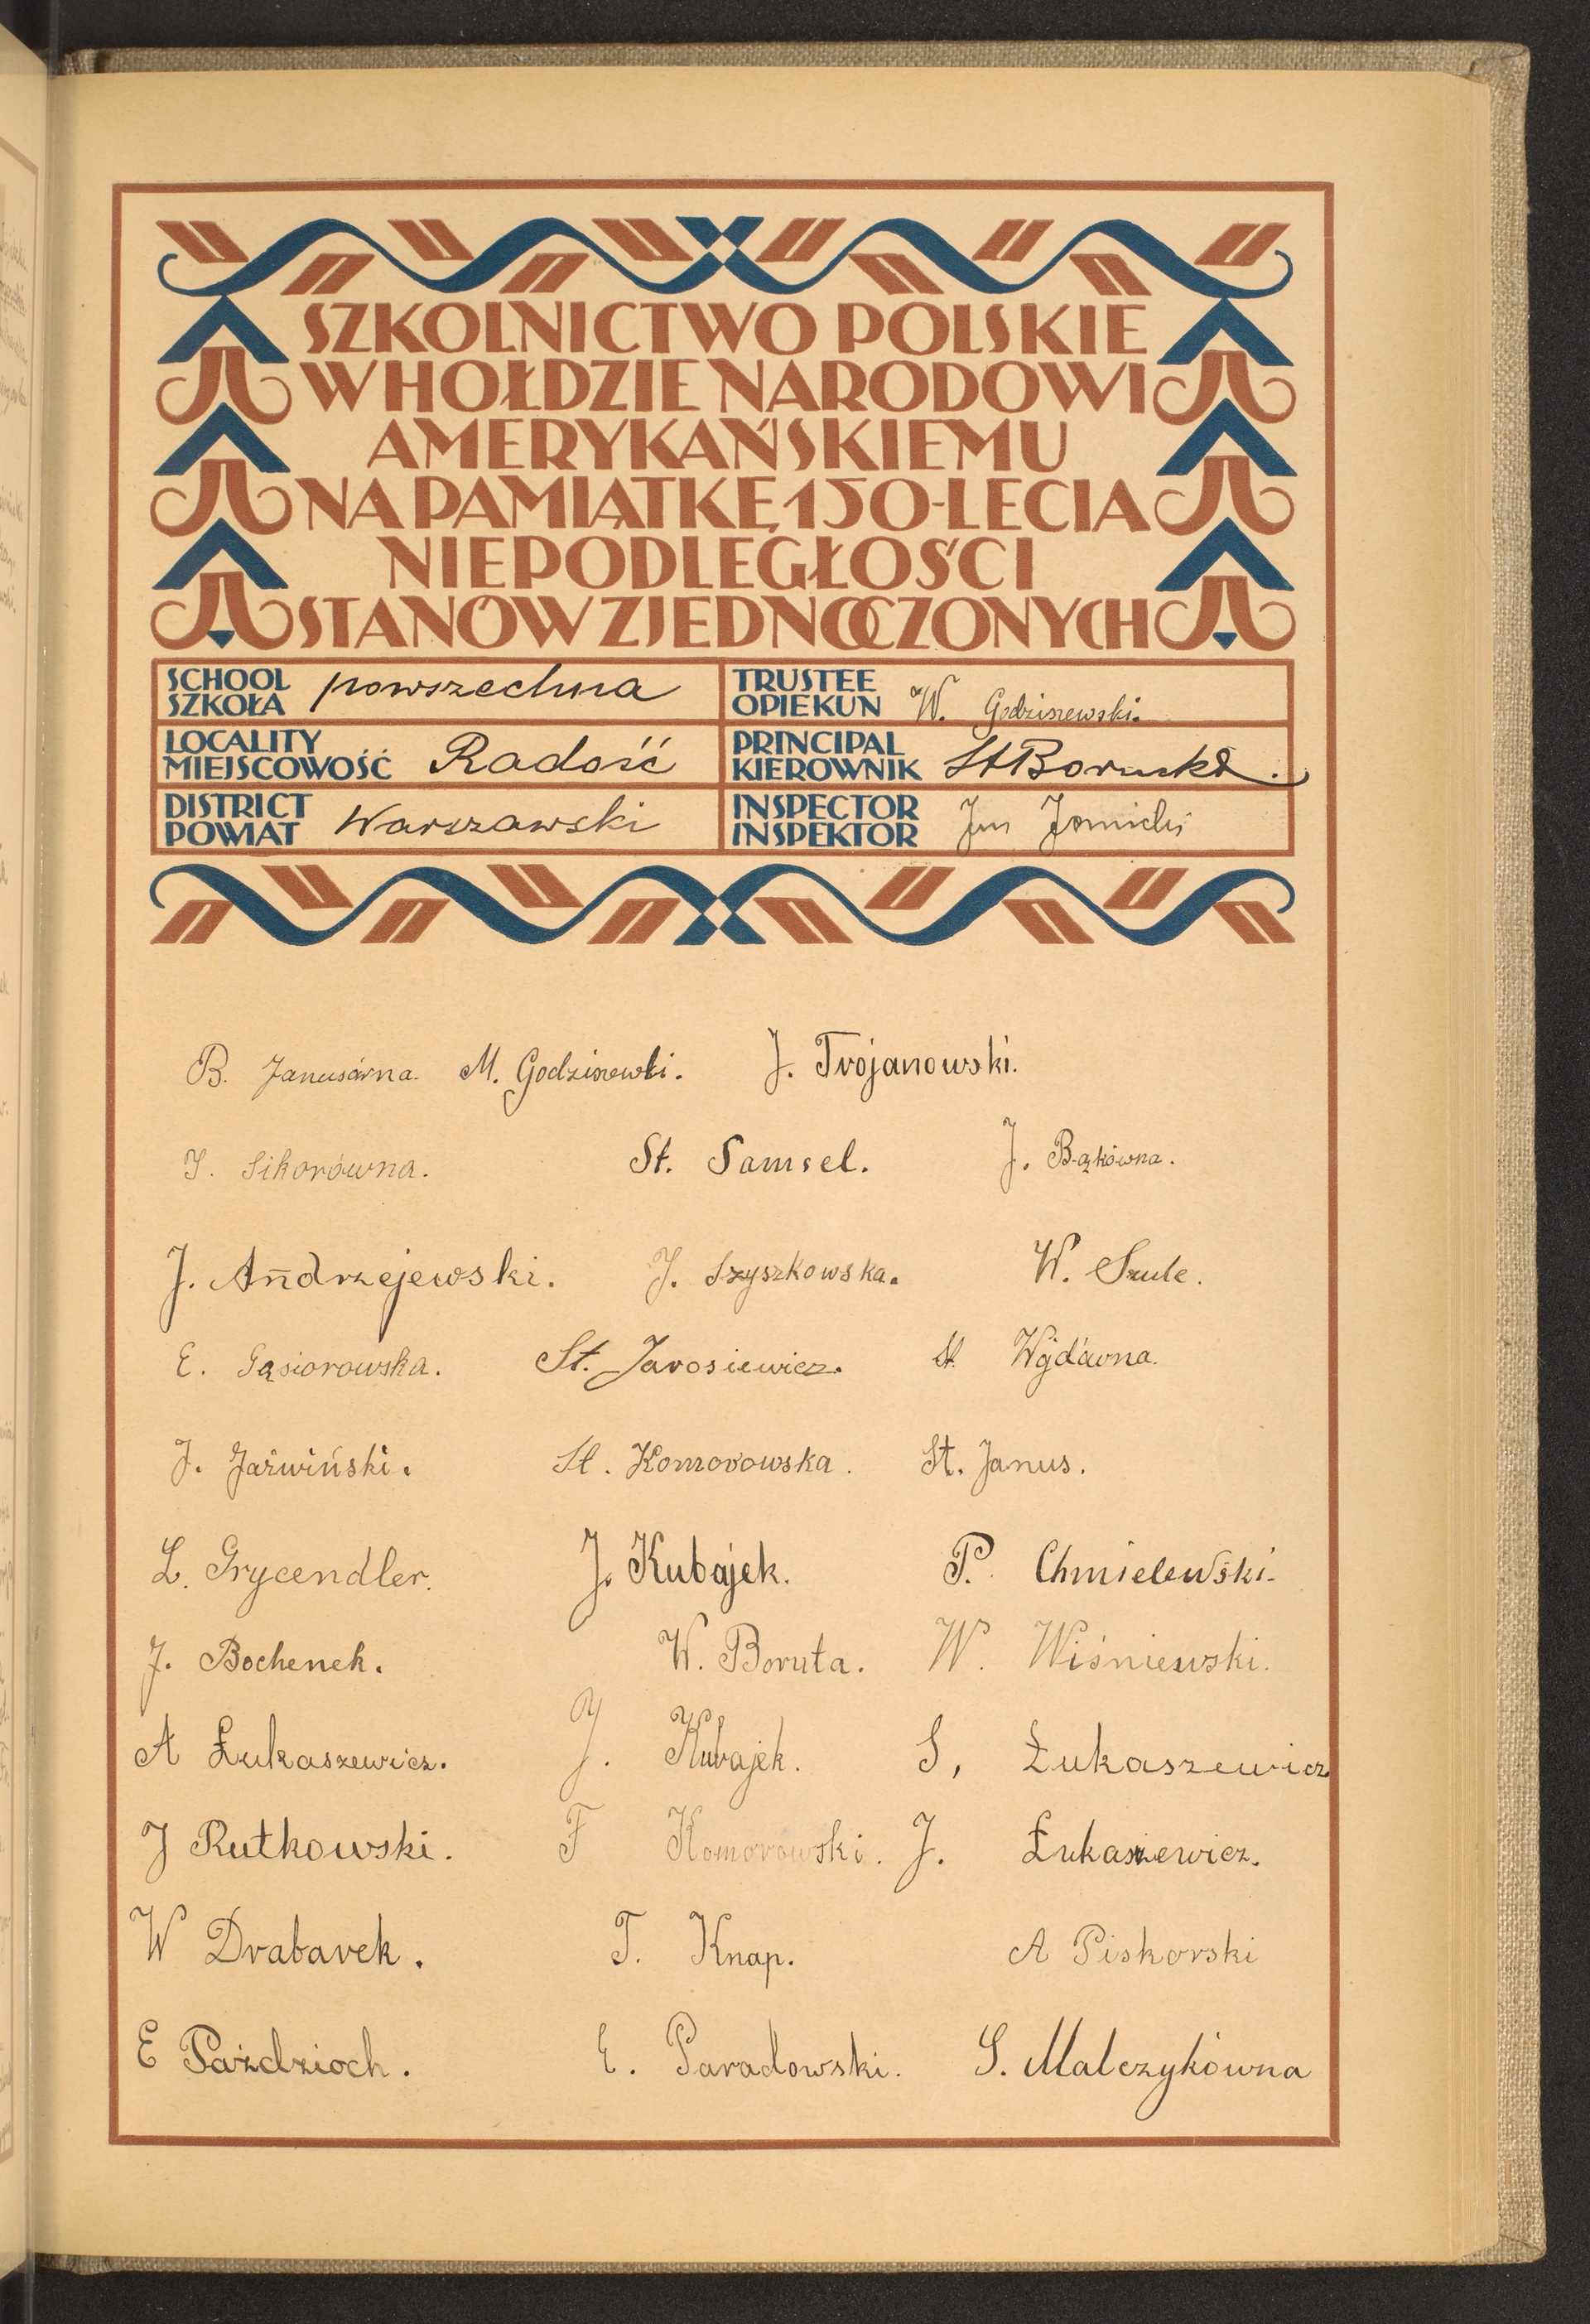 SZKOLNICTWO POLSKIE
W HOŁDZIE NARODOWI
AMERYKAŃSKIEMU
NA PAMIĄTKĘ 150-LECIA
NIEPODLEGŁOŚCI
STANÓW ZJEDNOCZONYCH
SCHOOL
SZKOŁA powszechna
TRUSTEE
OPIEKUN W. Godziszewski.
LOCALITY
MIEJSCOWOŚĆ Radość
PRINCIPAL
KIEROWNIK St
DISTRICT
POWIAT Warszawski
INSPECTOR
INSPEKTOR
B. M. Godziszewski. J. Trojanowski.
J. Sikorówna. St. Samsel. J. Bąkówna.
J. Andrzejewski. J. Szyszkowska. W. Szulc.
E. Gąsiorowska. St. Jarosiewicz. St. Wójdówna.
J. Jaźwiński. St. Komorowska. St. Janus.
L. Grycendler. J. Kubajek. P. Chmielewski.
J. Bochenek. W. Boruta. W. Wiśniewski.
A Łukaszewicz. J. Kubajek. S, Łukaszewicz
J Rutkowski. F Komorowski. J. Łukaszewicz.
W Drabarek. T. Knap. A Piskorski
E Paździoch. E. Paradowski. S. Malczykówna